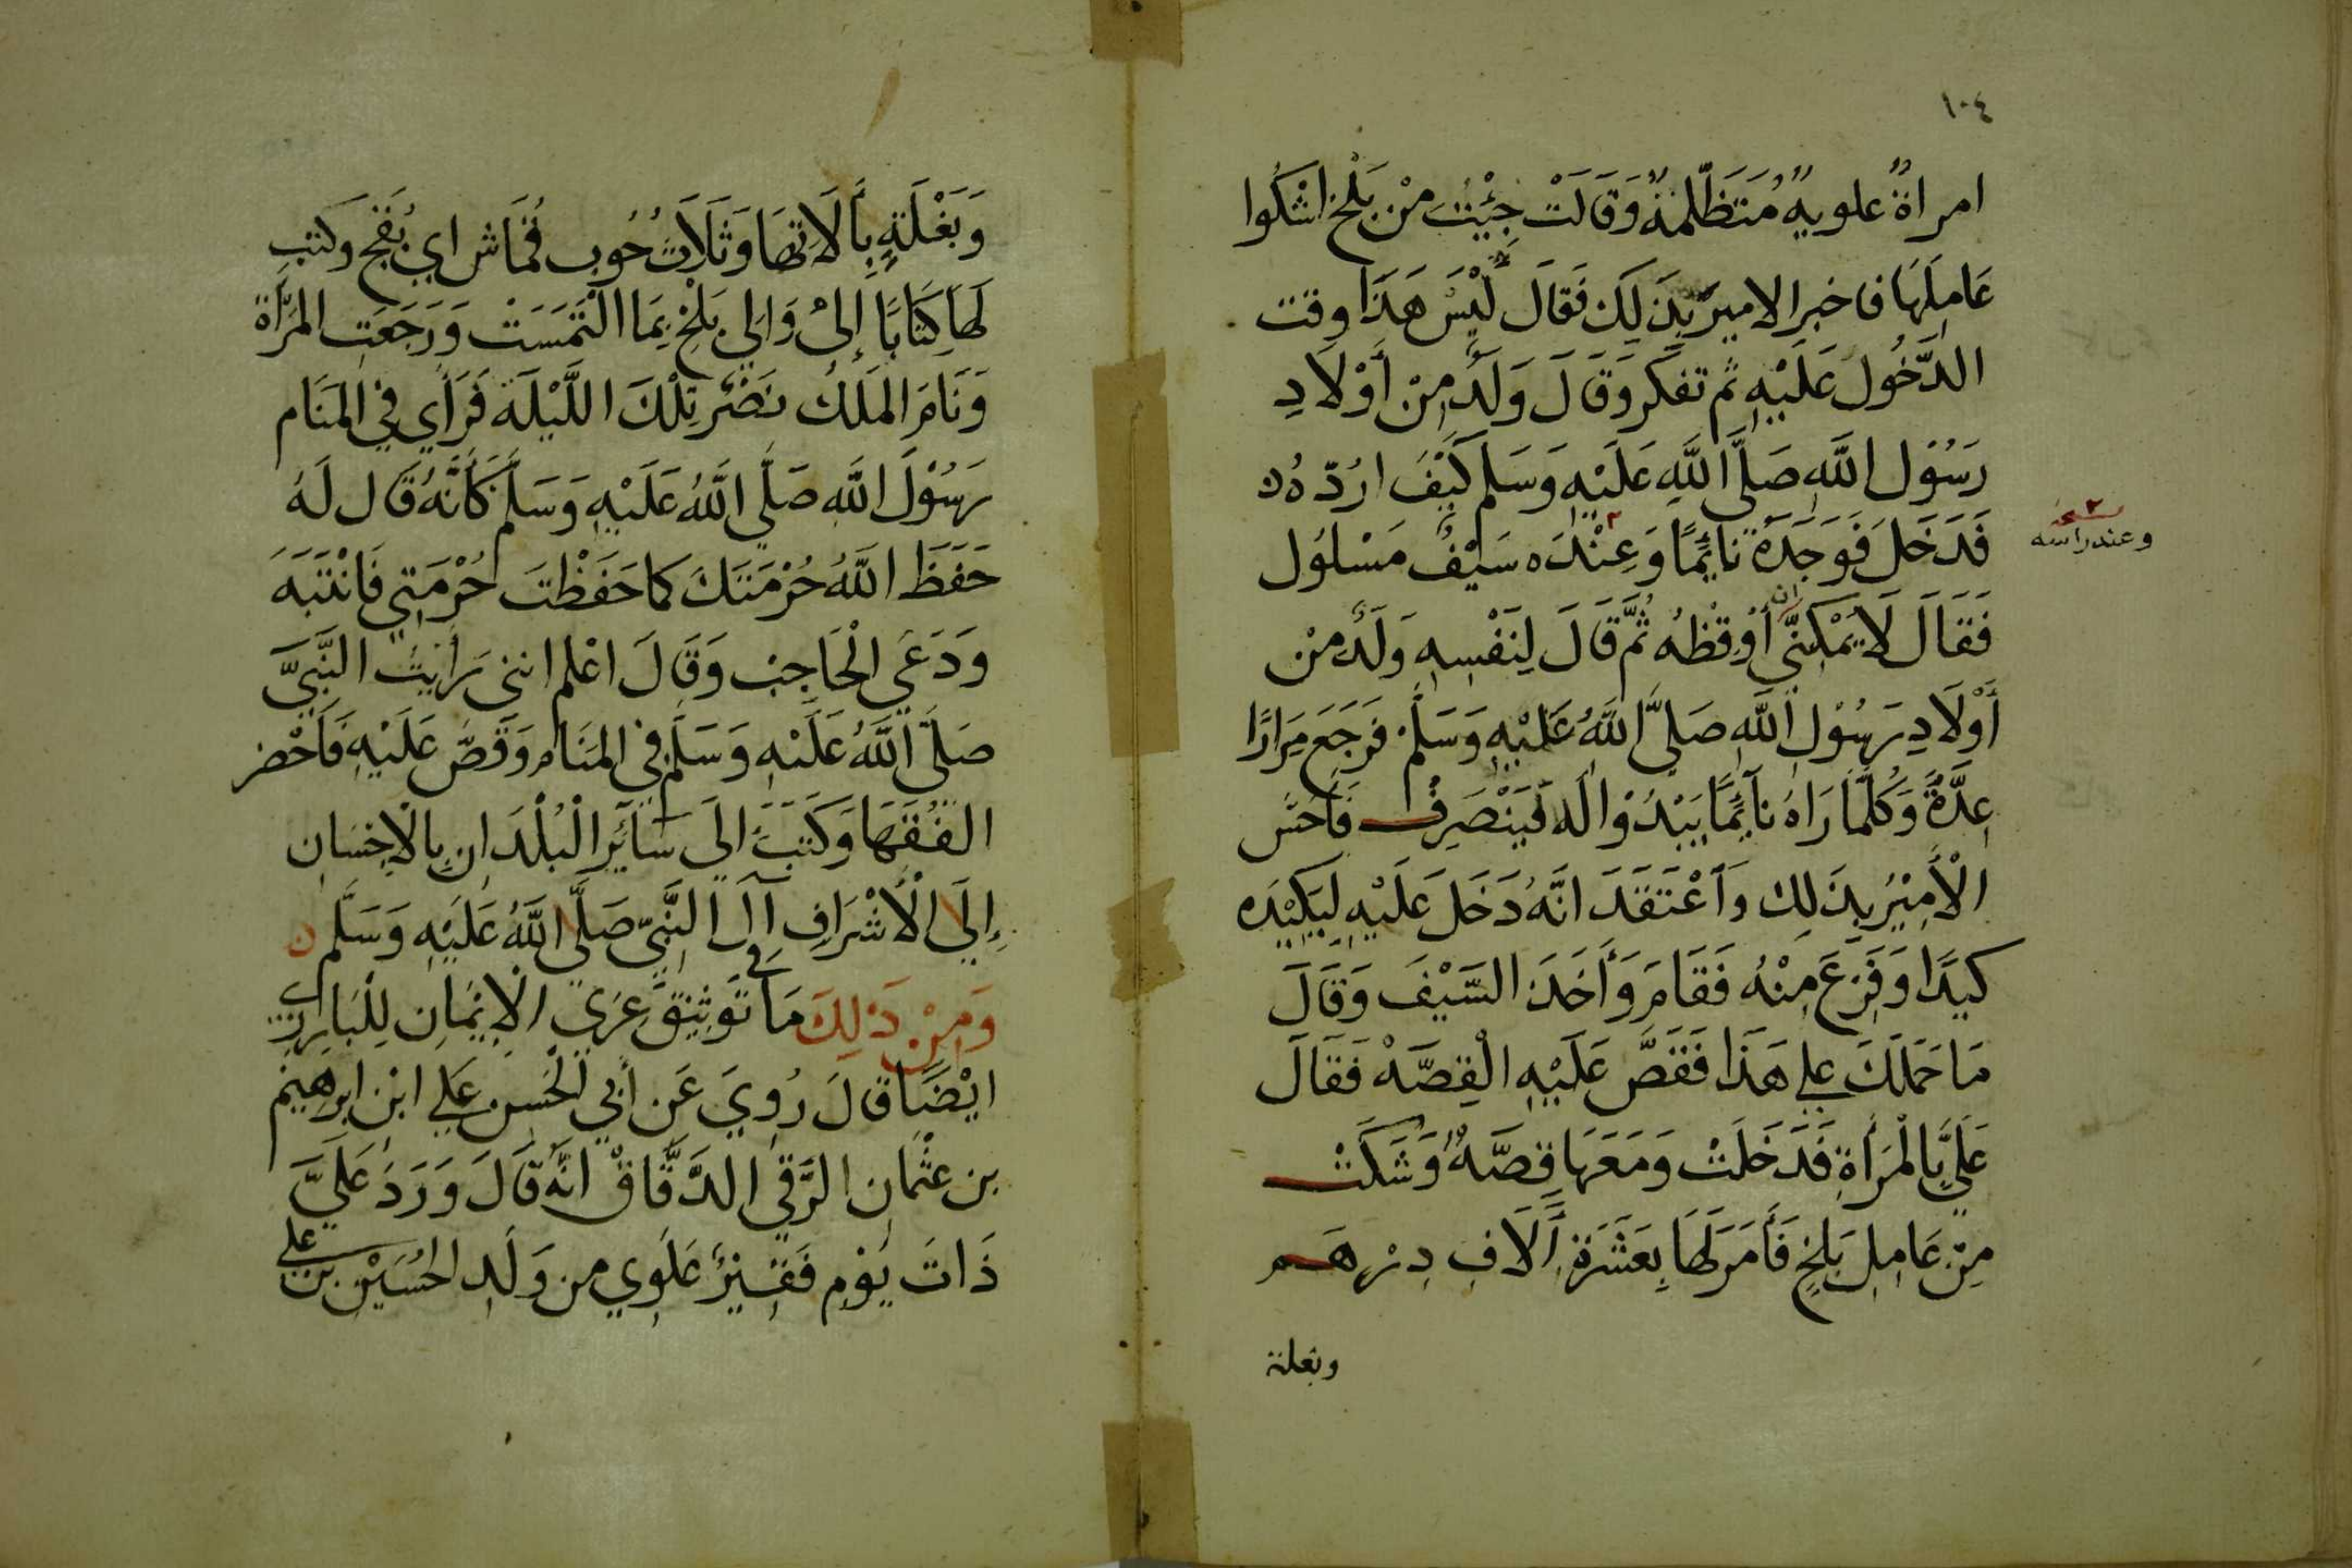 ١٠٤
امراةٌ علويهٌ مُتَظَلِّمَةٌ وَقَالَتْ جِئْتُ مِنْ بَلْخ اشْكُوا
عَامِلَهَا فاخبر الامير بِذَلِكَ فَقَالَ لَيْسَ هَذَا وقت
الدُّخُولُ عَلَيْهِ ثم تفكر وَقَالَ وَلَدٌ مِنْ أَوْلَادِ
رَسُوْلِ اللَّهِ صَلَّى اللَّهِ عَلَيْهِ وَسَلم كَيْفَ ارُدّهُ
فَدَخَلَ فَوَجَدَهُ نايِمًا وَعِنْدَه سَيْفٌ مَسْلوُل
وعند راسه
فَقَالَ لَا يُمْكِنُنِي ان أُوقِظُه ثُمَّ قَالَ لِنَفْسِهِ وَلَدٌ مِنْ
أَوْلَادِ رَسُوْلِ اللَّهِ صَلَّى اللَّهُ عَلَيْهِ وَسَلَّمْ فَرَجَعَ مِرَارًا
عِدَّةً وَكُلَّمَا رَاهُ نَآئِمًا يَبْدُوْا لَه فَيَنْصَرِفُ فَأَحَسَّ
الْأَمِيْرُ بِذَلِك وَاَعْتَقَدَ انَّهُ دَخَلَ عَلَيْهِ لِيَكِيْدَه
كيدًا وَفَزِعَ مِنْهُ فَقَامَ وَأَخَذَ السَّيْفَ وَقَالَ
مَا حَمَلَكَ علي هَذَا فَقَصَّ عَلَيْهِ الْقِصَّهْ فَقَالَ
عَلَيَّ بِالْمَرْأَةِ فَدَخَلَتْ وَمَعَهَا قِصَّهٌ وَشَكَتْ
مِنْ عَامِلِ بَلخٍ فَأَمَرَ لَهَا بِعَشَرَةِ أَلَافِ دِرْهَم
وبغلة
وَبَغْلَةٍ بِأَلَاتِهَا وَثَلَاَثُ حُوب قُمَاش اي بُقَج وَكتب
لَهَا كِتَابًا إِلَىْ وَالِي بَلْخ بِمَا الْتَمَسَتْ وَرَجَعَتِ المَرْأَة
وَنَامَ المَلَكُ نَصْر تِلْكَ اللَّيْلَة فَرَأَي فِي المَنَام
رَسُوْلَ اللَّهِ صَلَّي اللَّهُ عَلَيْهِ وَسَلَّم كَأَنَّهُ قَال لَهُ
حَفَظَ اللَّهُ حُرْمَتَكَ كما حَفَظْتَ حُرْمَتِي فَانْتَبَهَ
وَدَعَي الْحَاجِبْ وَقَالَ اعْلم اننى رَأَيْتُ النَّبِيَّ
صَلَّى اللَّهُ عَلَيْهِ وَسَلَّم فِي المَنَام وَقَصَّ عَلَيْهِ فَأَحْضر
الفُقَهَا وَكَتَبَ الَى سَآئِرِ الْبُلْدَانِ بِالْاِحْسَانِ
إِلَى الْأَشْرَافِ آلِ النَّبِيِّ صَلَّي اللَّهُ عَلَيْهِ وَسَلَّم ن
وَمِنْ ذَلِكَ مَا في تَوثِيْقِ عَرَي الْاِيْمَانِ لِلْبَارزي
ايْضًا قَالَ رُوِيَ عَن أَبِي الْحَسِن عَلي ابْن ابرهيم
بن عثْمانِ الرَّقي الدَّقَّاقْ انَّهُ قَالَ وَرَدَ عَلَيَّ
ذَاتَ يَوْمٍ فَقِيرٌ عَلَوِي من وَلَدِ الحُسَيْنِ بن علي